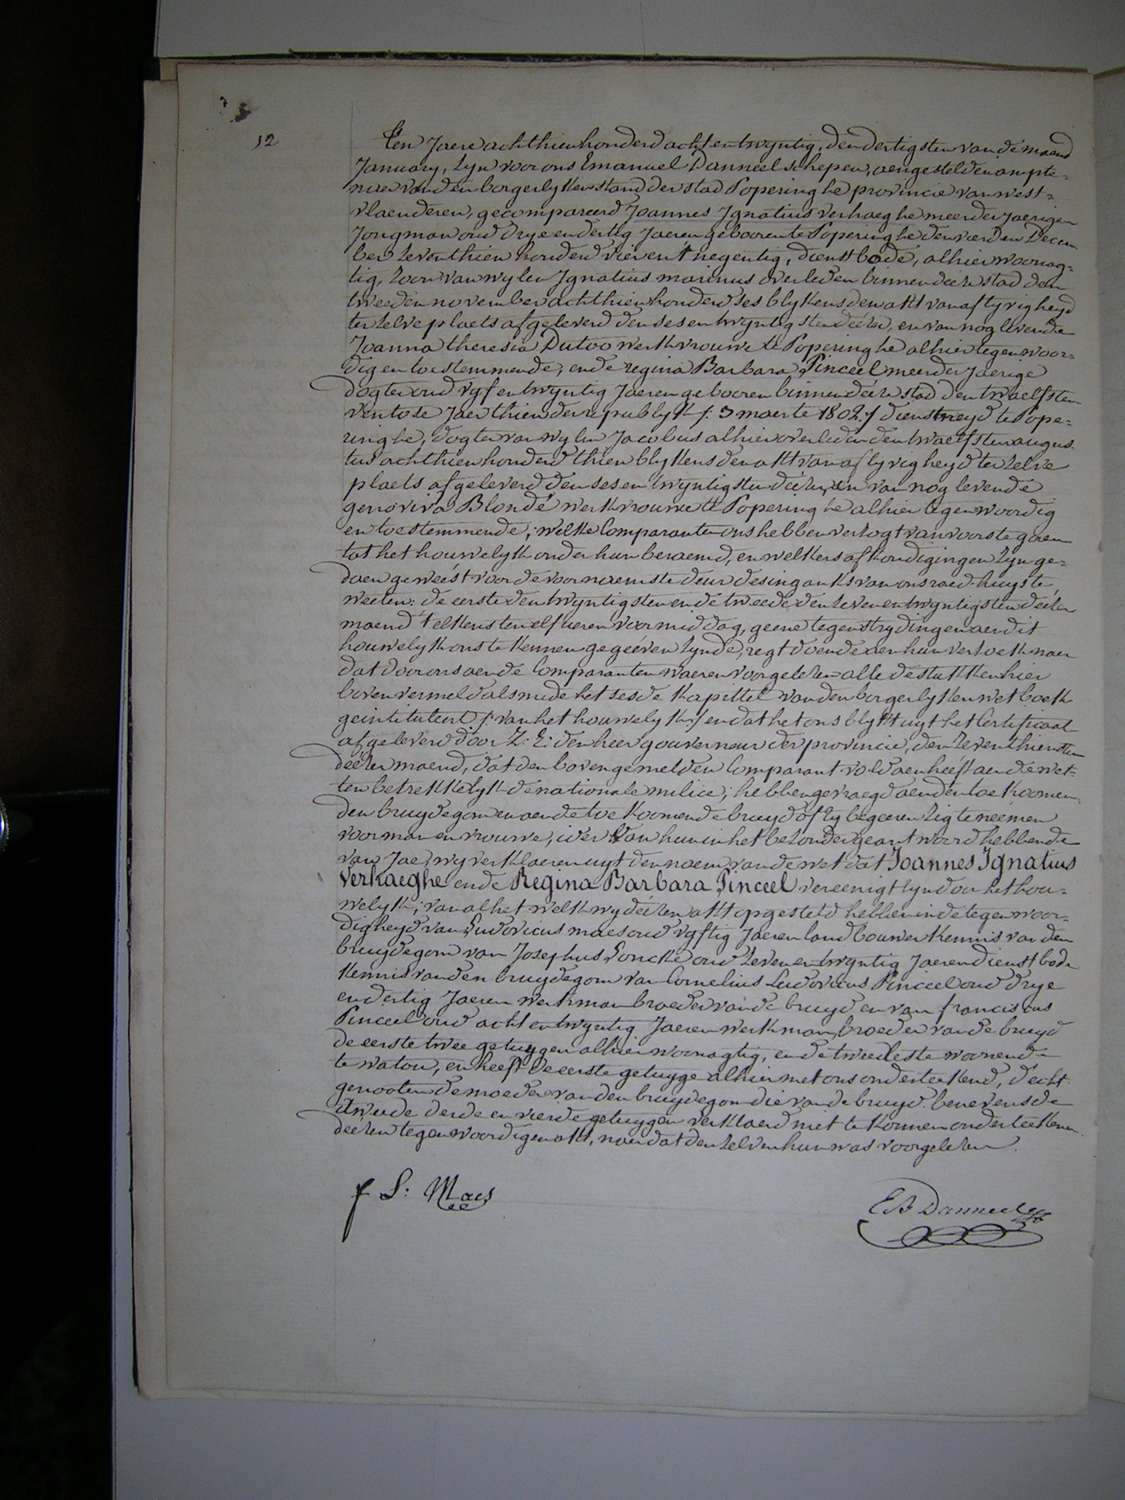 12
Ten Jaere achthien honderd acht en twyntig, den dertigsten van de maend
January, zyn voor ons Emanuel Danneel schepen, aengesteld en ampte-
naer van den borgerlyken stand der stad Poperinghe provincie van west-
vlaenderen, gecompareerd Joannes Ignatius verhaeghe meerderjaerigen
Jongman oud drye en dertig Jaeren gebooren te Poperinghe den vierden Decem
ber zeventhien honderd vier en t'negentig, dienstbode, alhier woonag-
tig, zoon van wylen Ignatius marinus overleden binnen deeze stad den
tweeden november achthien honderd ses blykens den akt van aflyvigheyd
ter zelve plaets afgeleverd den ses en twyntigsten deézer, en van nog levende
Joanna theresia Dutoo werkvrouwe te Poperinghe alhier tegenwoor-
dig en toestemmende, ende regina Barbara Pinceel meerderjaerige
dogter oud vyf en twyntig Jaeren gebooren binnen deéze stad den twaelfsten
ventose Jaer thien der republyk /: 3 maerte 1802 :/ dienstmeyd te Pope-
ringhe, dogter van wylen Jacobus alhier overleden den twaelfsten augus
tus achthien honderd thien blykens den akt van aflyvigheyd ter zelve
plaets afgeleverd den ses en twyntigsten deézer, en van nog levende
genoviva Blondé werkvrouwe te Poperinghe alhier tegenwoordig
en toestemmende; welke Comparanten ons hebben verzogt van voorstegaen
tot het houwelyk onder hun beraemd, en welkers afkondigingen zyn ge-
daen geweést voor de voornaemste deur des ingank's van ons raed-huys te
weeten: de eerste den twyntigsten en de tweede den zeven en twyntigsten deézer
maend t'elkens ten elf ueren voormiddag, geene tegenstrydingen aen dit
houwelyk ons te kennen gegeéven zynde, regt doende aen hun verzoek naer
dat door ons aen de Comparanten waeren voorgelezen alle de stukken hier
boven vermeld alsmede het sesde kapittel van den borgerlyken wet boek
geintituleert /: van het houwelyk :/ en dat het ons blykt uyt het Certificaat
afgeleverd door Z: E: den heer gouverneur der provincie, den zeventhiensten
deézer maend, dat den bovengemelden Comparant voldaen heéft aen de wet-
ten betrekkelyk de nationale milice; hebben gevraegd aen den toekoomen-
den bruydegom en aen de toekoomende bruyd of zy begeeren zig te neemen
voor man en vrouwe, ider van hun in het bezonder geantwoord hebbende
van Jae, wy verklaeren uyt den naem van de wet dat Joannes Ignatius
Verhaeghe ende Regina Barbara Pinceel vereenigt zyn door het hou-
welyk; van al het welk wy deézen akt opgesteld hebben in de tegenwoor-
digheyd van Ludovicus maes oud vyftig Jaeren landbouwer kennis van den
bruydegom van Josephus Loncke oud zeven en twyntig Jaeren dienstbode
kennis van den bruydegom van Cornelius Ludovicus Pinceel oud drye
en dertig Jaeren werkman broeder van de bruyd en van franciscus
Pinceel oud acht en twyntig Jaeren werkman, broeder van de bruyd
de eerste twee getuygen alhier woonagtig, en de twee leste woonende
te watou, en heeft de eerste getuyge alhier met ons onderteekend, d'echt-
genooten de moeder van den bruydegom die van de bruyd benevens de
tweede derde en vierde getuygen verklaerd niet te konnen onderteekenen
deézen tegenwoordigen akt, naer dat den zelven hun was voorgelezen.
f L: Maes
EB Danneel